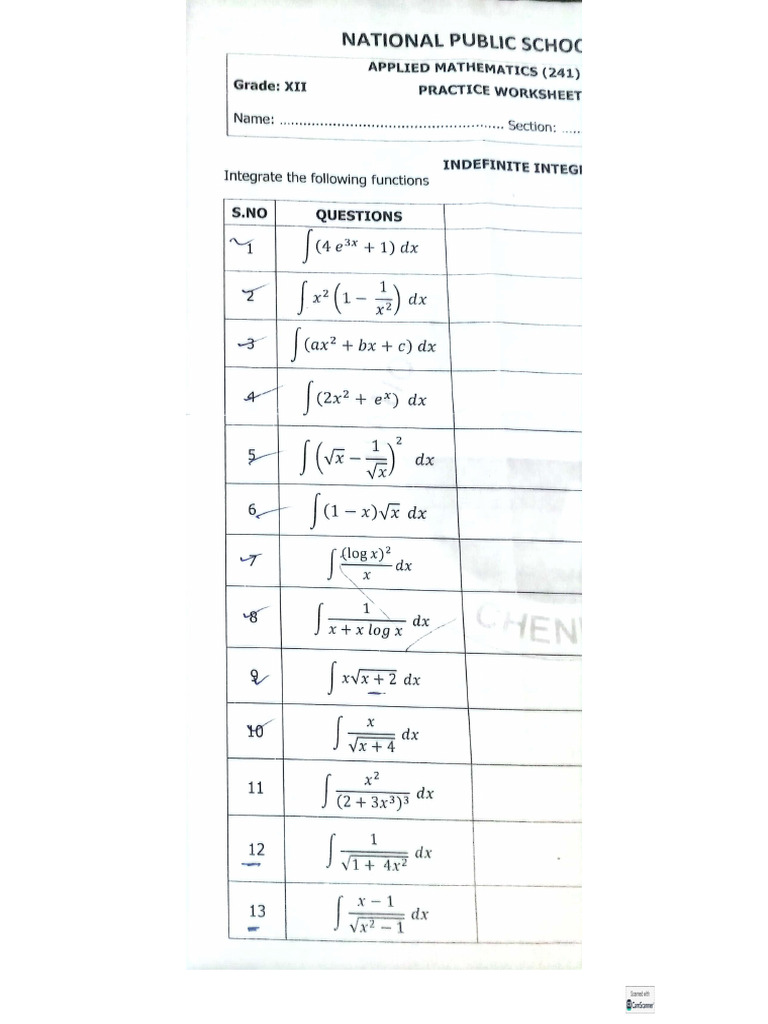 NATIONAL PUBLIC SCHOO
APPLIED MATHEMATICS (241)
Grade: XII PRACTICE WORKSHEET
Name: ........................................................ Section: .....
INDEFINITE INTEG
Integrate the following functions
S.NO QUESTIONS
1 ∫(4 e³ˣ + 1) dx
2 ∫ x² (1 − 1/x²) dx
3 ∫(ax² + bx + c) dx
4 ∫(2x² + eˣ) dx
5 ∫(√x − 1/√x)² dx
6 ∫(1 − x)√x dx
7 ∫ (log x)²/x dx
8 ∫ 1/(x + x log x) dx
CHEN
9 ∫ x√(x + 2) dx
10 ∫ x/√(x + 4) dx
11 ∫ x²/(2 + 3x³)³ dx
12 ∫ 1/√(1 + 4x²) dx
13 ∫ (x − 1)/√(x² − 1) dx
Scanned with
CamScanner